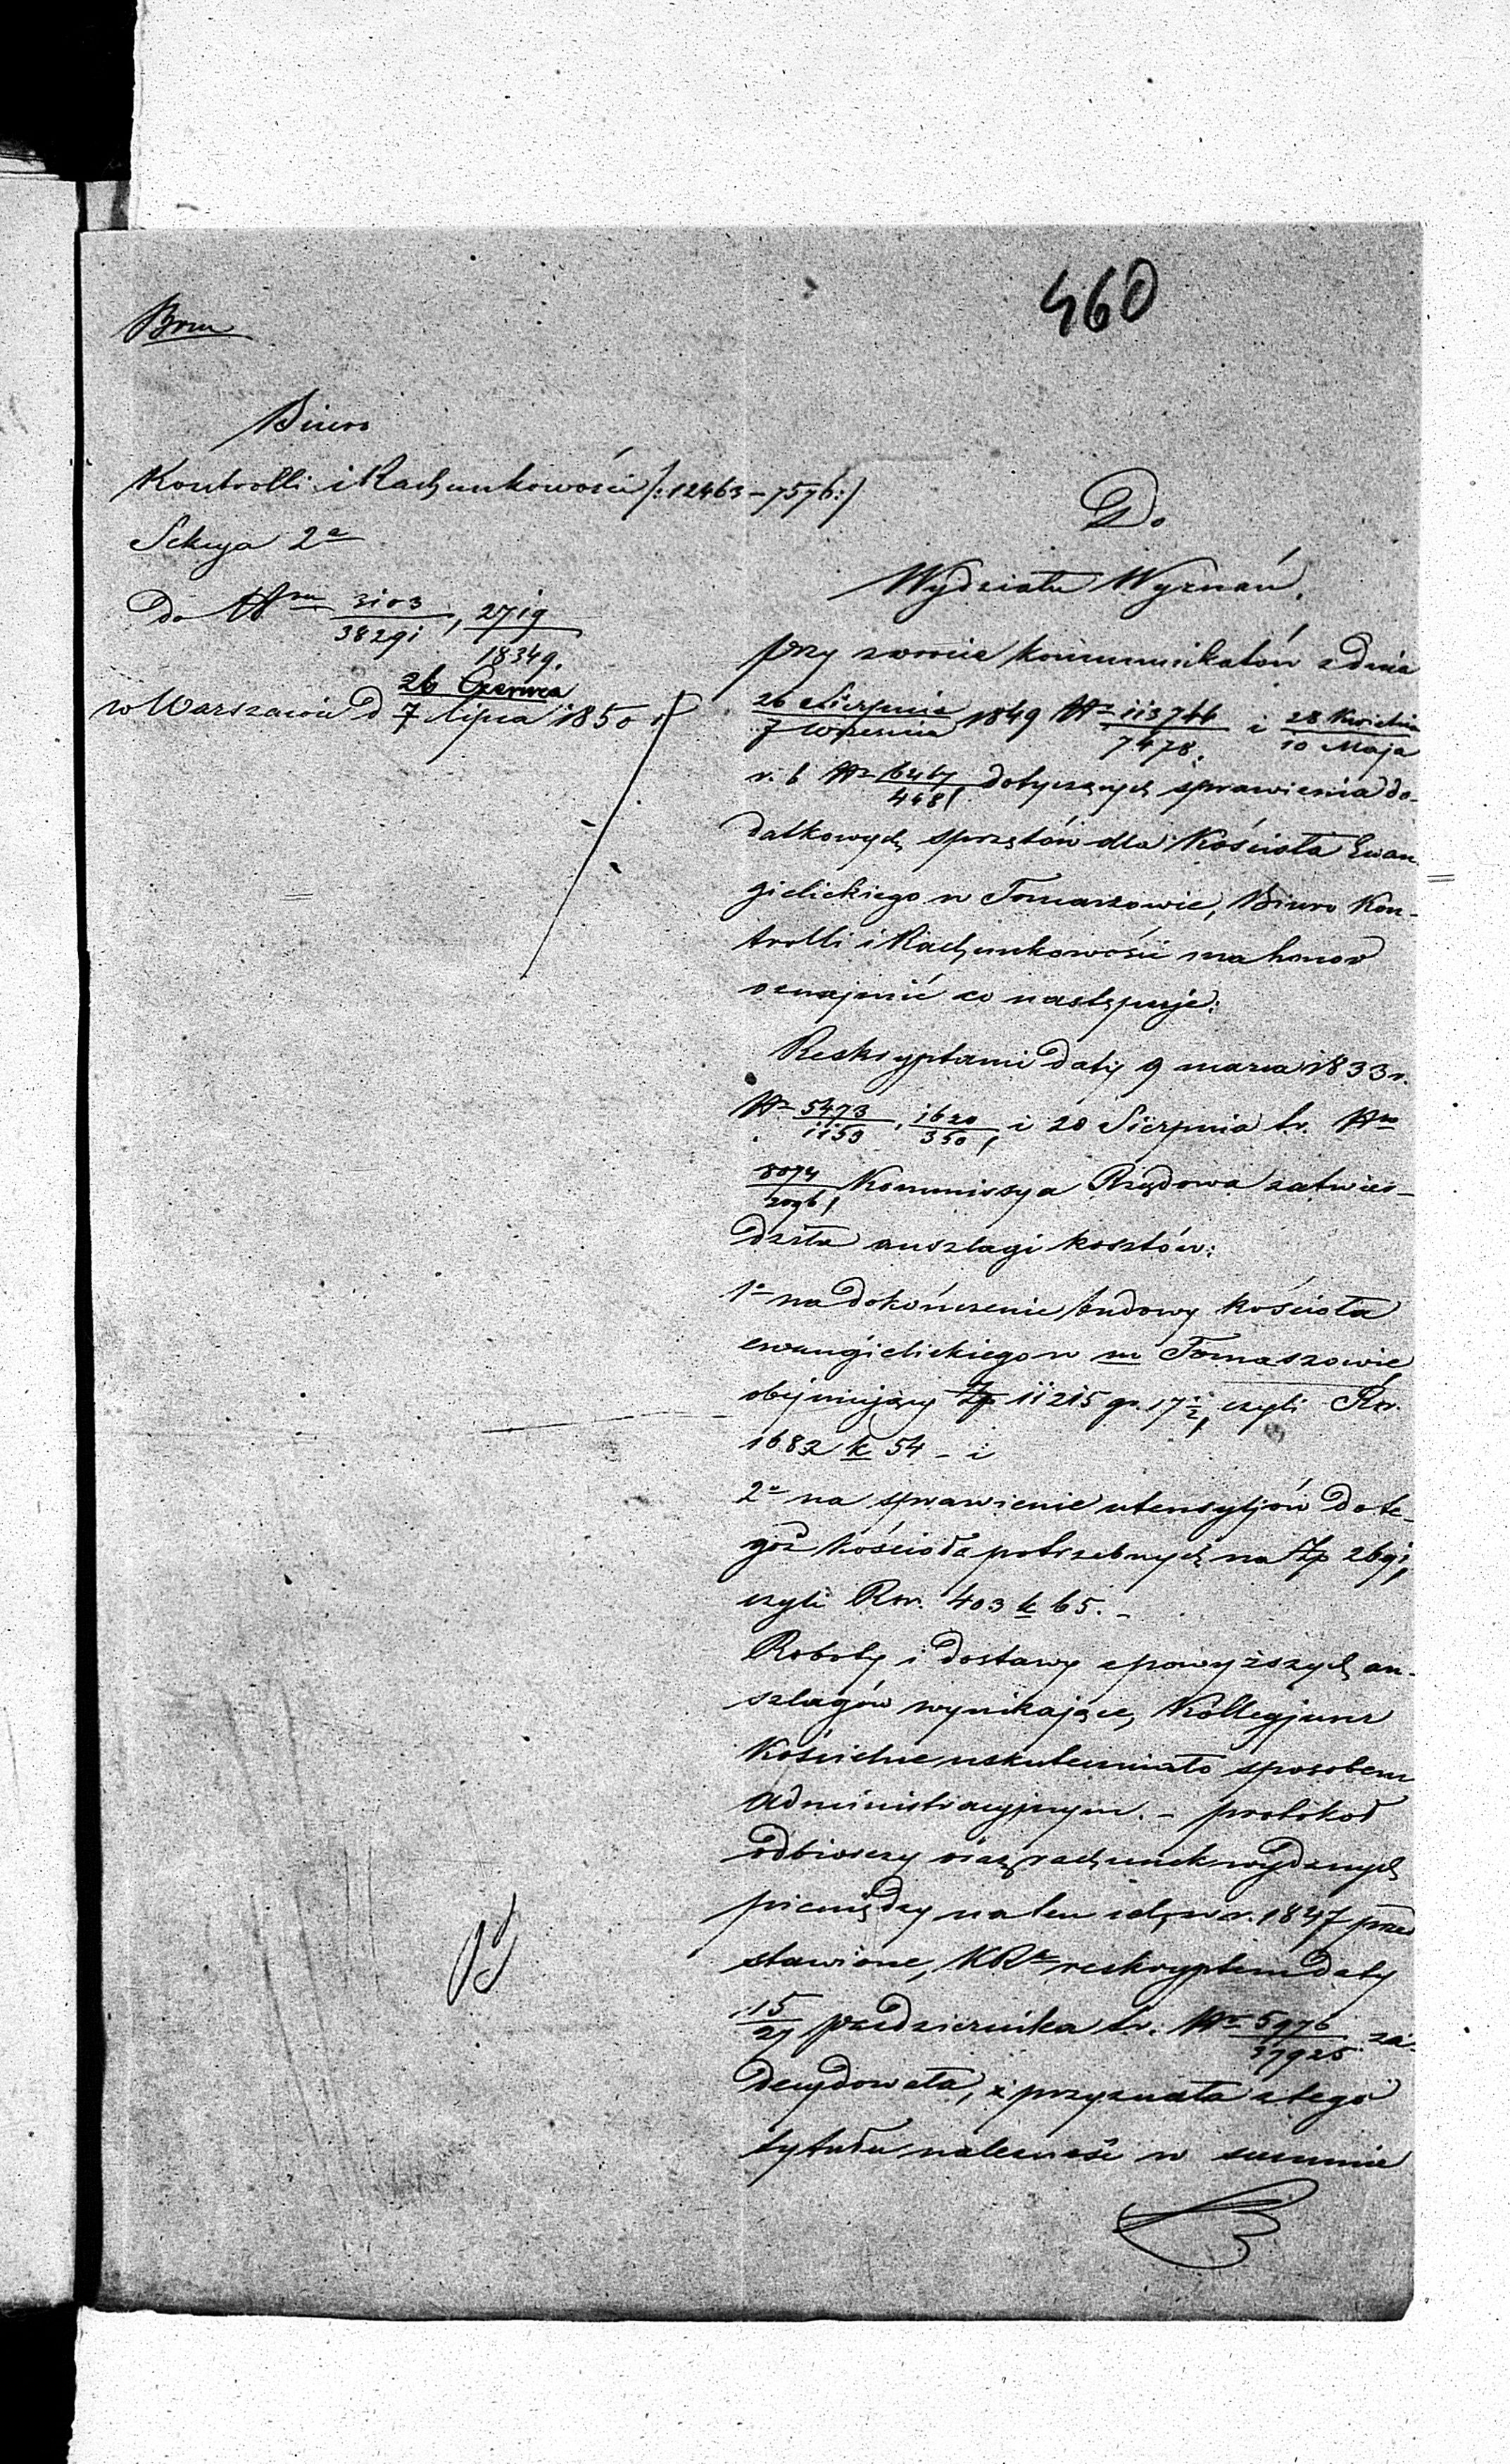 460
Brm
Biuro
Kontrolli i Rachunkowości /:12463 – 7576:/
Sekcya 2a
Do Nru 3103/38291, 2719/18349.
w Warszawie d 26 Czerwca/7 lipca 1850 r.
Do
Wydziału Wyznań.
przy zwrocie kommunikatów z dnia
26 Sierpnia/7 Września 1849 Nr 113746/7478. i 28 Kwietnia/10 Maja
r. b Nr 6467/448, dotyczących sprawienia do-
datkowych sprzętów dla Kościoła Ewan-
gielickiego w Tomaszowie, Biuro Kon-
trolli i Rachunkowości ma honor
oznajmić co następuje:
Reskryptami daty 9 marca 1833 r.
Nr 5473/1159, 1620/350, i 20 Sierpnia t.r. Nro
8074/2096, Kommissya Rządowa zatwier-
dziła anszlagi kosztów:
1e na dokończenie budowy kościoła
ewangielickiego w m Tomaszowie
obejmujący Zp 11215 gr. 17 1/2, czyli Rsr.
1682 k 54 – i
2e na sprawienie utensyljów do te-
goż kościoła potrzebnych na Zp 2691,
czyli Rsr. 403 k 65. –
Roboty i dostawy z powyższych an-
szlagów wynikające, Kollegjum
Kościelne uskuteczniało sposobem
administracyjnym. – protokoł
odbiorczy oraz rachunek wydanych
pieniędzy na ten cel, w r. 1847 przed
stawione, KRa reskryptem daty
15/27 października t.r. Nr 5976/37925 za-
decydowała, i przyznała z tego
tytułu należność w summie